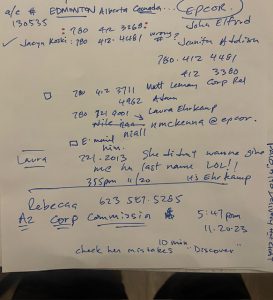 a/c # EDMONTON Alberta Canada... EPCOR.
130535 John Elford
: 780 412 3268 :
✓ Jacyn Koski : 780. 412. 4481 wrong #? Jennifer Addison
780. 412 4481
412 3380
780 412 3711 Matt Lemay Corp Rel
4962 Adam
780 721 2001 → Laura Ehrkamp
nmckenna @ epcor.
E-mail niall
him.
Laura 721.2013 She didn't wanna give
me her last name LOL!!
355pm 11/20 it's Ehrkamp
Rebecca 623 587. 5285
AZ Corp Commission 5:47pm
11.20.23
10 min
check her mistakes "Discover"